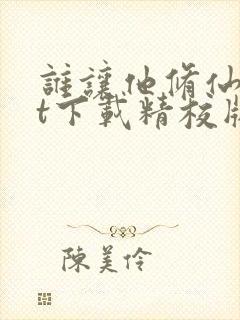 誰讓他脩仙
t下載精校版
陳美伶